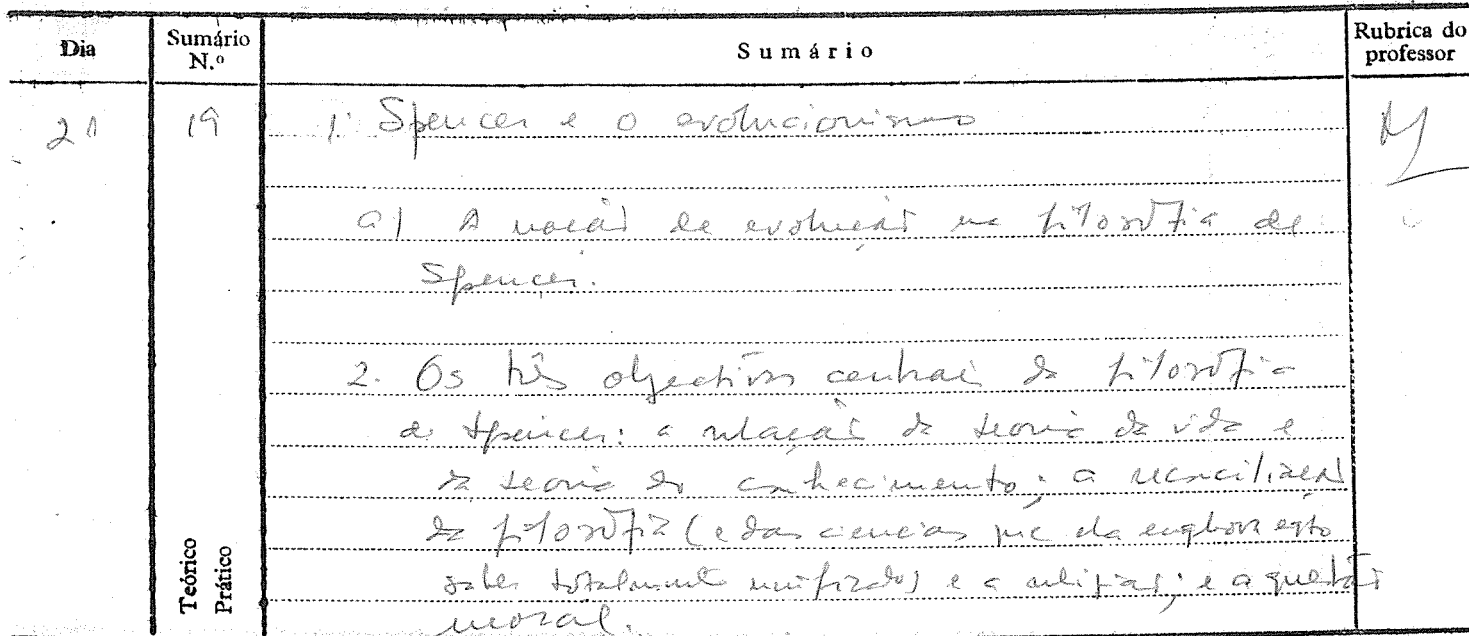 Dia
Sumário N.º
Sumário
Rubrica do professor
21 19 1. Spencer e o evolucionismo
a) A noção de evolução na filosofia de
Spencer.
2. Os três objectivos centrais da filosofia
de Spencer: a relação da teoria da vida e
da teoria do conhecimento; a reconciliação
da filosofia (e das ciencias que ela engloba
saber totalmente unificado) e a religião; e a questão
moral.
Teórico
Prático